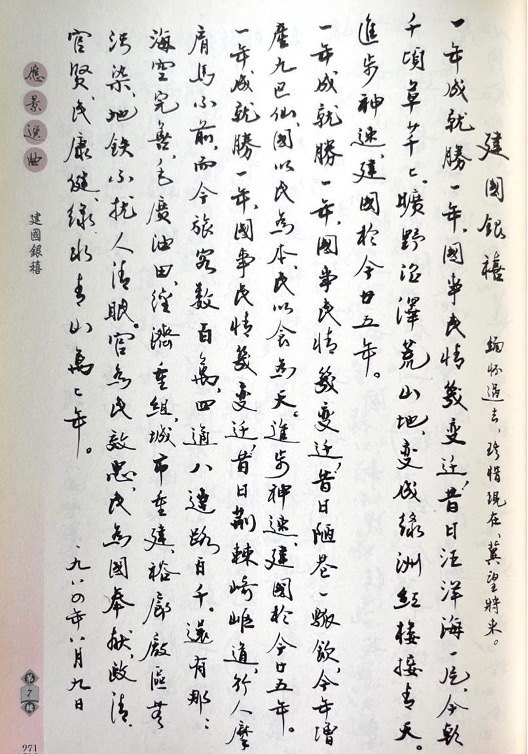 建國銀禧 緬怀過去、珍惜現在、冀望將来。
一年成就勝一年，國事民情幾变迁，昔日汪洋海一片，今乾
千頃草芊々，曠野沼澤荒山地，变成綠洲紅楼接青天。
進步神速，建國於今廿五年。
一年成就勝一年，國事民情幾变迁，昔日陋巷一瓢飲，今年增
產九巴仙，國以民為本，民以食為天。進步神速，建國於今廿五年。
一年成就勝一年，國事民情幾变迁，昔日荊棘崎岖道，行人摩
肩馬不前，而今旅客数百萬，四通八達路百千。還有那：
海空完善，毛廣油田，經濟重組，城市重建，裕廊廠區
污染，地鉄不扰人清眠。官為民效忠，民為國奉献，政清
官賢，民康健，綠水青山萬々年。
一九八四年八月九日
應景選曲
建國銀禧
第7輯
271